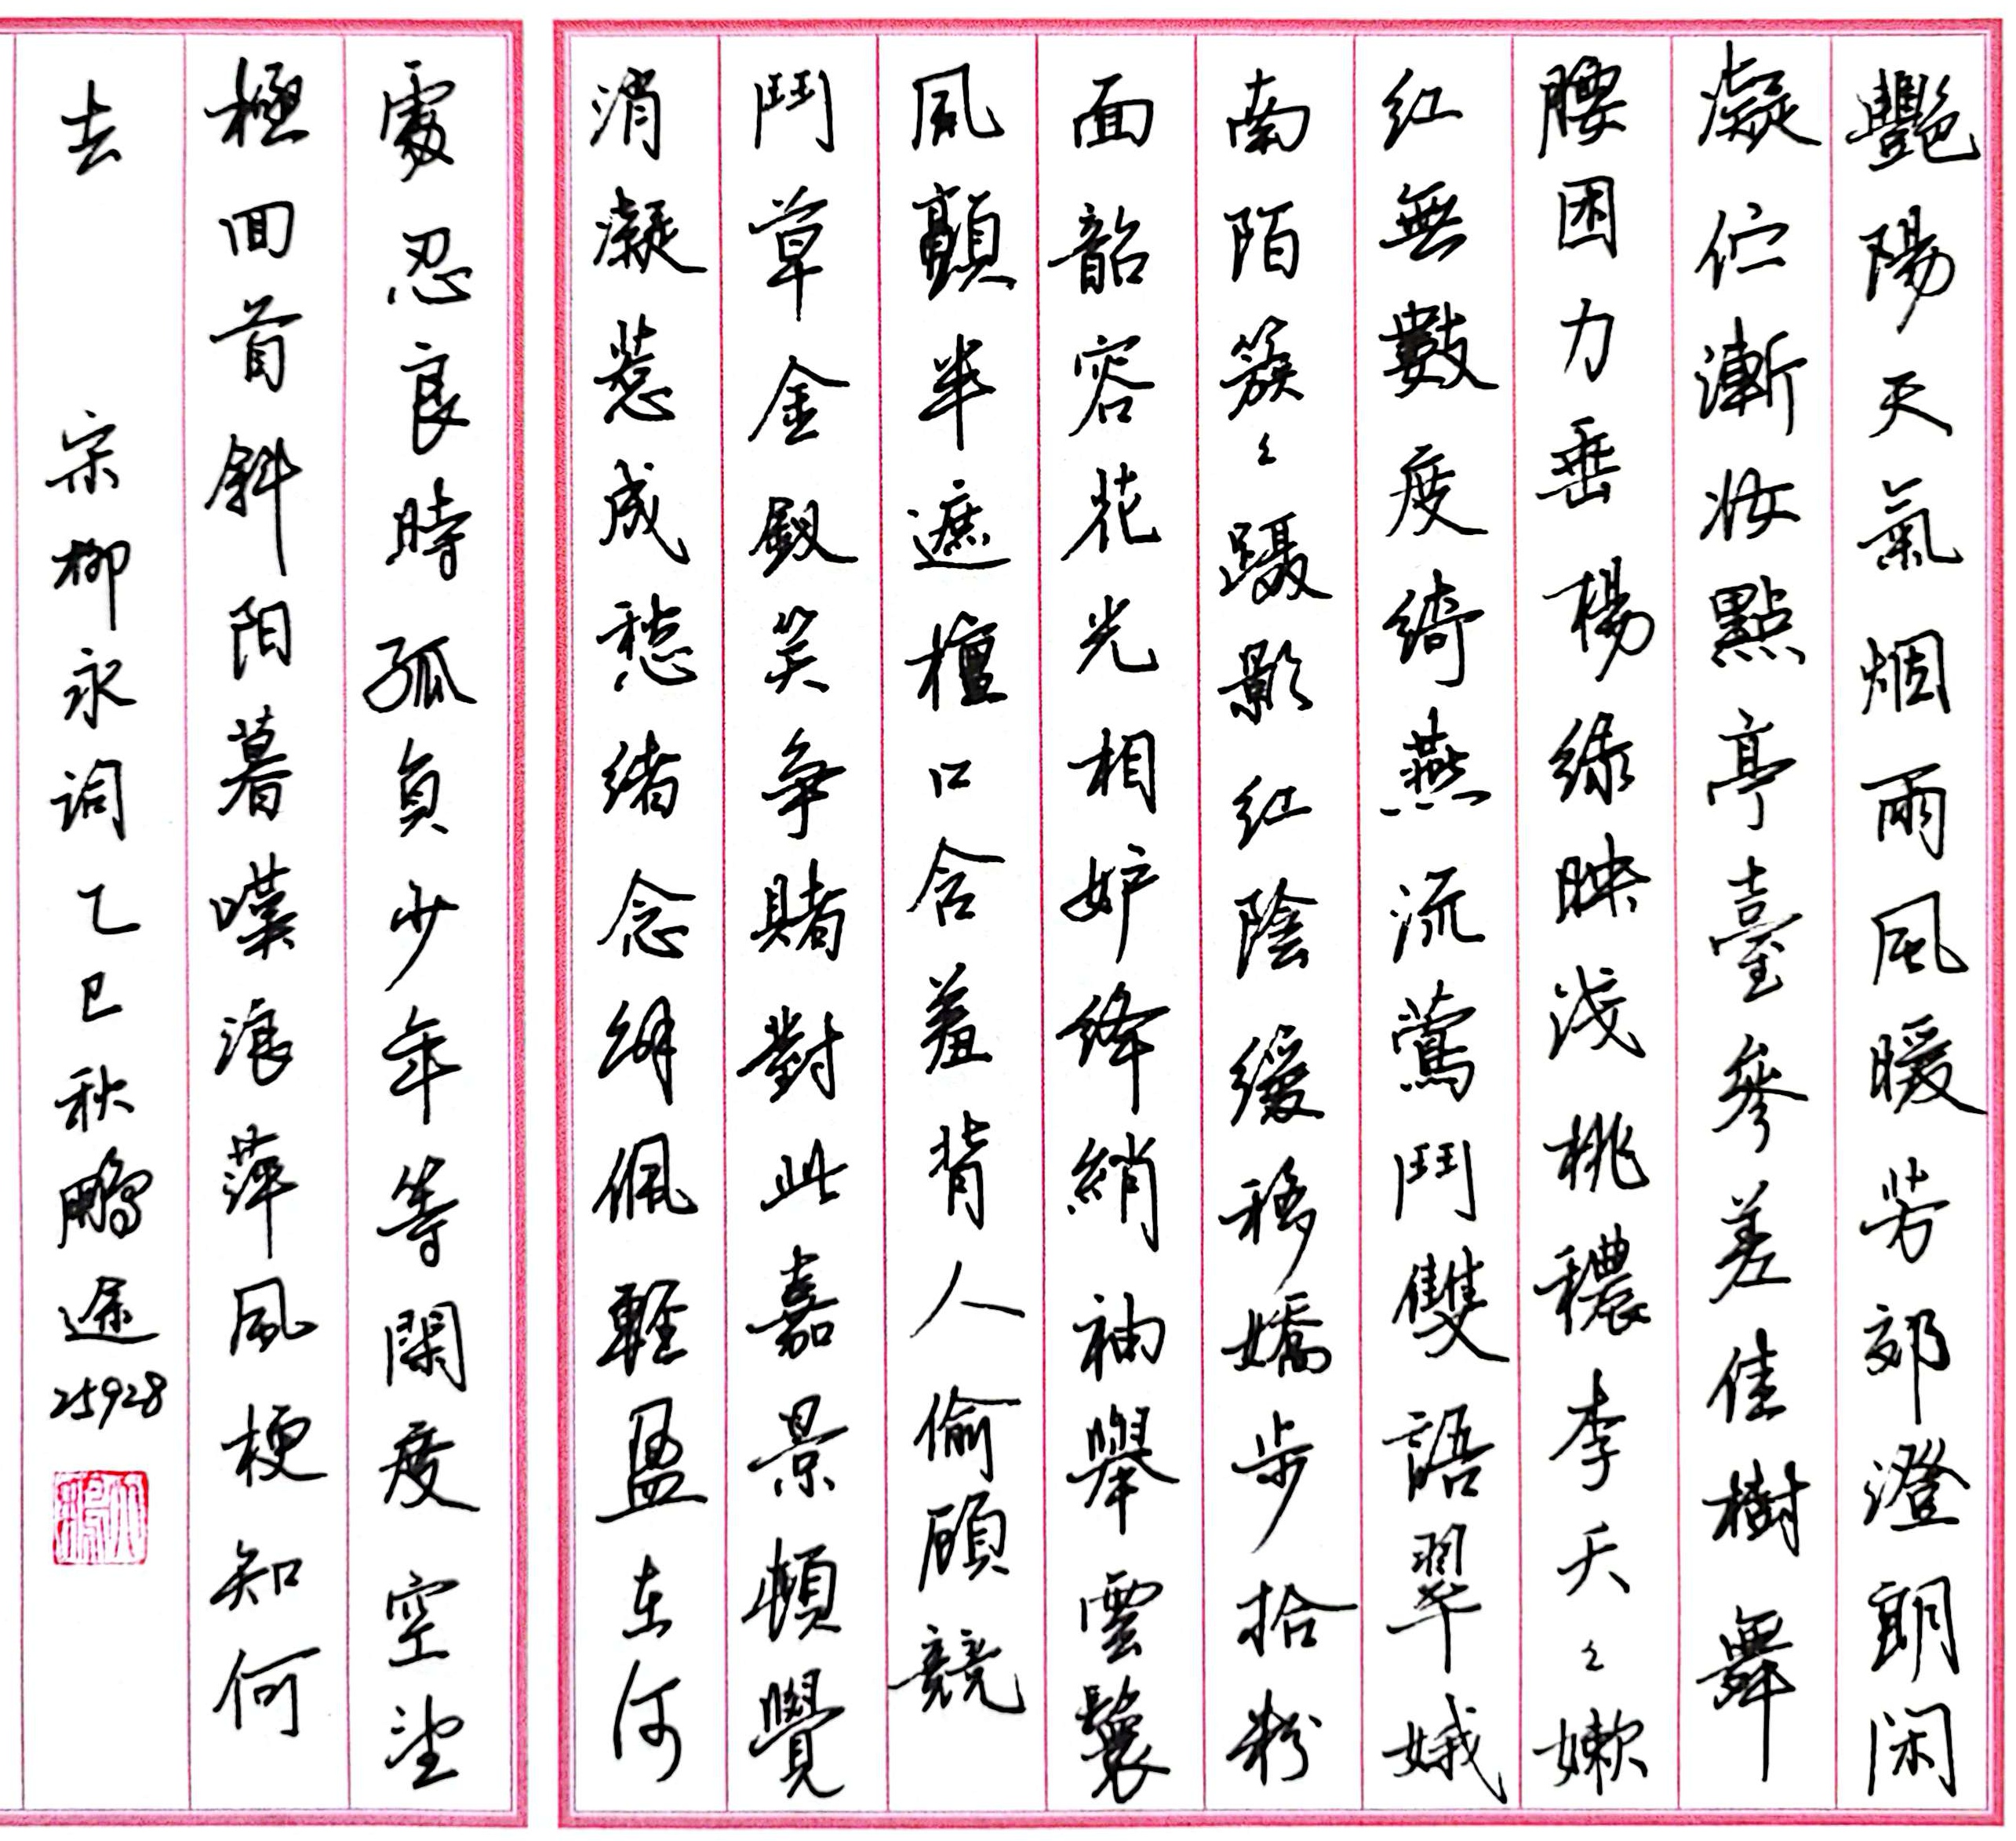 艷陽天氣烟雨風暖芳郊澄朗闲
凝佇漸妝點亭臺參差佳樹舞
腰困力垂楊綠映淺桃穠李夭々嫩
紅無數度綺燕流鶯鬥雙語翠娥
南陌簇々躡影紅陰緩移嬌步抬粉
面韶容花光相妒絳綃袖舉雲鬟
風顫半遮檀口含羞背人偷顧競
鬥草金釵笑争賭對此嘉景頓覺
消凝惹成愁緒念解佩輕盈在何
處忍良時孤負少年等閑度空望
極回首斜阳暮嘆浪萍風梗知何
去
宋柳永詞乙巳秋鵬途25928